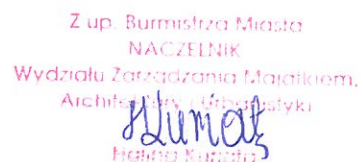 Z up. Burmistrza Miasta
NACZELNIK
Wydziału Zarządzania Majątkiem,
Architektury i Urbanistyki
Halina